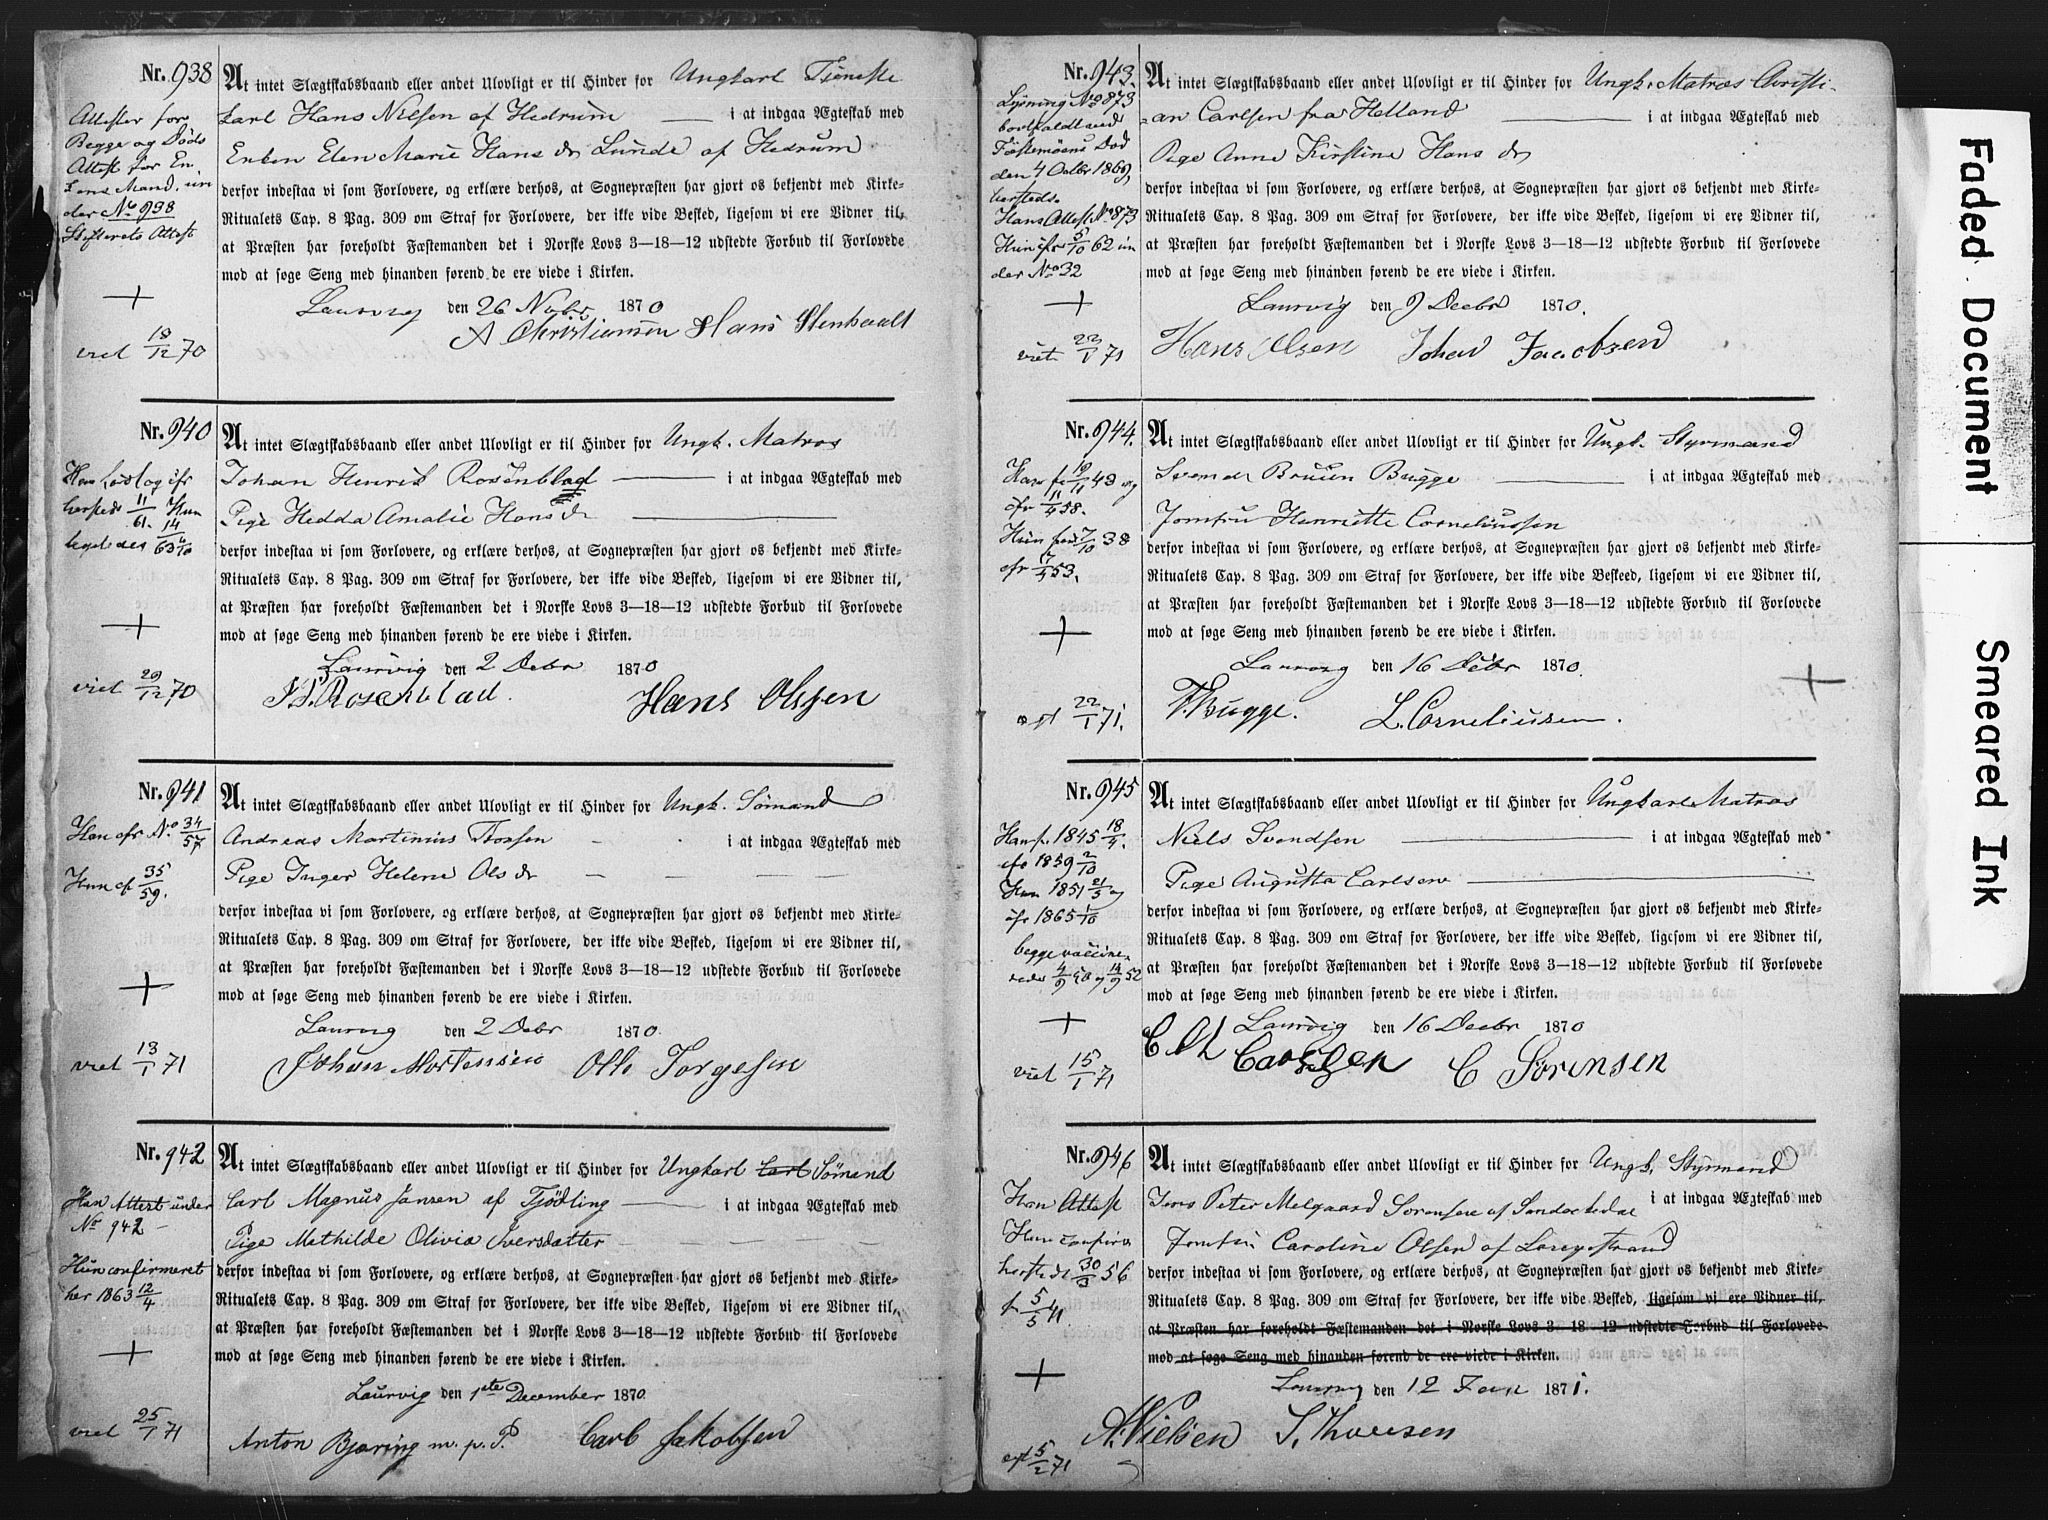 Nr. 938
At intet Slægtskabsbaand eller andet Ulovligt er til Hinder for Ungkarl Tjeneste
karl Hans Nielsen af Hedrum — i at indgaa Ægteskab med
Enken Elen Marie Hansdr Lunde af Hedrum
derfor indestaa vi som Forlovere, og erklære derhos, at Sognepræsten har gjort os bekjendt med Kirke-
Ritualets Cap. 8 Pag. 309 om Straf for Forlovere, der ikke vide Besked, ligesom vi ere Vidner til,
at Præsten har foreholdt Fæstemanden det i Norske Lovs 3—18—12 udstedte Forbud til Forlovede
mod at søge Seng med hinanden førend de ere viede i Kirken.
Laurvig den 26 Novbr 1870
A Christiansen Hans Stenhaalt
Attester for
Begge og Døds
Attest for En
kens Mand, un
der No 938
Skifterets Attest
+
viet 18/12 70
Nr. 940
At intet Slægtskabsbaand eller andet Ulovligt er til Hinder for Ungk. Matros
Johan Henrik Rosenblad — i at indgaa Ægteskab med
Pige Hedda Amalie Hansdr —
derfor indestaa vi som Forlovere, og erklære derhos, at Sognepræsten har gjort os bekjendt med Kirke-
Ritualets Cap. 8 Pag. 309 om Straf for Forlovere, der ikke vide Besked, ligesom vi ere Vidner til,
at Præsten har foreholdt Fæstemanden det i Norske Lovs 3—18—12 udstedte Forbud til Forlovede
mod at søge Seng med hinanden førend de ere viede i Kirken.
Laurvig den 2 Debr 1870
Rosenblad. Hans Olssen
hersteds 11/61. Hun
ligeledes 14/63
+
viet 29/12 70
Nr. 941
At intet Slægtskabsbaand eller andet Ulovligt er til Hinder for Ungk. Sømand
Andreas Martinius Thorsen - - i at indgaa Ægteskab med
Pige Inger Helene Olsdr — — — —
derfor indestaa vi som Forlovere, og erklære derhos, at Sognepræsten har gjort os bekjendt med Kirke-
Ritualets Cap. 8 Pag. 309 om Straf for Forlovere, der ikke vide Besked, ligesom vi ere Vidner til,
at Præsten har foreholdt Fæstemanden det i Norske Lovs 3—18—12 udstedte Forbud til Forlovede
mod at søge Seng med hinanden førend de ere viede i Kirken.
Laurvig den 2 Debr 1870.
Johan Mortensen Otto Torgesen
Han cfr No. 34/57
Hun cf 35/59.
+
viet 13/1 71
Nr. 942
At intet Slægtskabsbaand eller andet Ulovligt er til Hinder for Ungkarl Carl Sømand
Carl Magnus Jansen af Tjødling — i at indgaa Ægteskab med
Pige Mathilde Olivia Iversdatter — — — —
derfor indestaa vi som Forlovere, og erklære derhos, at Sognepræsten har gjort os bekjendt med Kirke-
Ritualets Cap. 8 Pag. 309 om Straf for Forlovere, der ikke vide Besked, ligesom vi ere Vidner til,
at Præsten har foreholdt Fæstemanden det i Norske Lovs 3—18—12 udstedte Forbud til Forlovede
mod at søge Seng med hinanden førend de ere viede i Kirken.
Laurvig den 1ste December 1870
Anton Bjøring m. p. P. Carl Jakobsen
Han Attest under
No 942 —
Hun confirmeret
her 1863 12/4
+
viet 25/1 71
Nr. 943.
At intet Slægtskabsbaand eller andet Ulovligt er til Hinder for Ungk. Matros Christi-
an Carlsen fra Helland — i at indgaa Ægteskab med
Pige Anne Kirstine Hansdr
derfor indestaa vi som Forlovere, og erklære derhos, at Sognepræsten har gjort os bekjendt med Kirke-
Ritualets Cap. 8 Pag. 309 om Straf for Forlovere, der ikke vide Besked, ligesom vi ere Vidner til,
at Præsten har foreholdt Fæstemanden det i Norske Lovs 3—18—12 udstedte Forbud til Forlovede
mod at søge Seng med hinanden førend de ere viede i Kirken.
Laurvig den 9 Decbr 1870.
Hans Olsen Johan Jacobsen
Lysning No 873
bortfaldt ved
Fæstemøens Død
den 4 Octbr 1869,
hersteds.
Hans Attest No 873
Hun cfr 5/10 62 un
der No 32
+
viet 22/1 71
Nr. 944.
At intet Slægtskabsbaand eller andet Ulovligt er til Hinder for Ungk. Styrmand
Svend Bruun Bugge — i at indgaa Ægteskab med
Jomfru Henriette Corneliussen
derfor indestaa vi som Forlovere, og erklære derhos, at Sognepræsten har gjort os bekjendt med Kirke-
Ritualets Cap. 8 Pag. 309 om Straf for Forlovere, der ikke vide Beskeed, ligesom vi ere Vidner til,
at Præsten har foreholdt Fæstemanden det i Norske Lovs 3—18—12 udstedte Forbud til Forlovede
mod at søge Seng med hinanden førend de ere viede i Kirken.
Laurvig den 16 Decbr 1870.
Bugge. L. Corneliussen.
Han fø 19/11 43 og
cfr 11/4 58.
Hun født 7/10 38
cfr 17/4 53.
+
22/1 71.
Nr. 945
At intet Slægtskabsbaand eller andet Ulovligt er til Hinder for Ungkarl Matros
Niels Svendsen — i at indgaa Ægteskab med
Pige Augusta Carlsen —
derfor indestaa vi som Forlovere, og erklære derhos, at Sognepræsten har gjort os bekjendt med Kirke-
Ritualets Cap. 8 Pag. 309 om Straf for Forlovere, der ikke vide Besked, ligesom vi ere Vidner til,
at Præsten har foreholdt Fæstemanden det i Norske Lovs 3—18—12 udstedte Forbud til Forlovede
mod at søge Seng med hinanden førend de ere viede i Kirken.
Laurvig den 16 Decbr 1870
Carlsen C Sørensen
Han f. 1845 18/4.
cfr 1859 2/10
Hun 1851 21/5 og
cfr 1865 1/10
begge vaccine-
rede 4/9 50 og 14/9 52
+
viet 15/1 71
Nr. 946
At intet Slægtskabsbaand eller andet Ulovligt er til Hinder for Ungk. Styrmand
Jens Peter Melgaard Sørensen af Sandøkedal i at indgaa Ægteskab med
Jomfru Caroline Olsen af Langestrand
derfor indestaa vi som Forlovere, og erklære derhos, at Sognepræsten har gjort os bekjendt med Kirke-
Ritualets Cap. 8 Pag. 309 om Straf for Forlovere, der ikke vide Besked, ligesom vi ere Vidner til,
at Præsten har foreholdt Fæstemanden det i Norske Lovs 3—18—12 udstedte Forbud til Forlovede
mod at søge Seng med hinanden førend de ere viede i Kirken.
Laurvig den 12 Jan 1871.
A. Nielsen S. Thorsen
Han Attest
Hun confirm
hersteds 30/3 56
f. 5/5 41
+
5/2 71
Faded Document
Smeared Ink